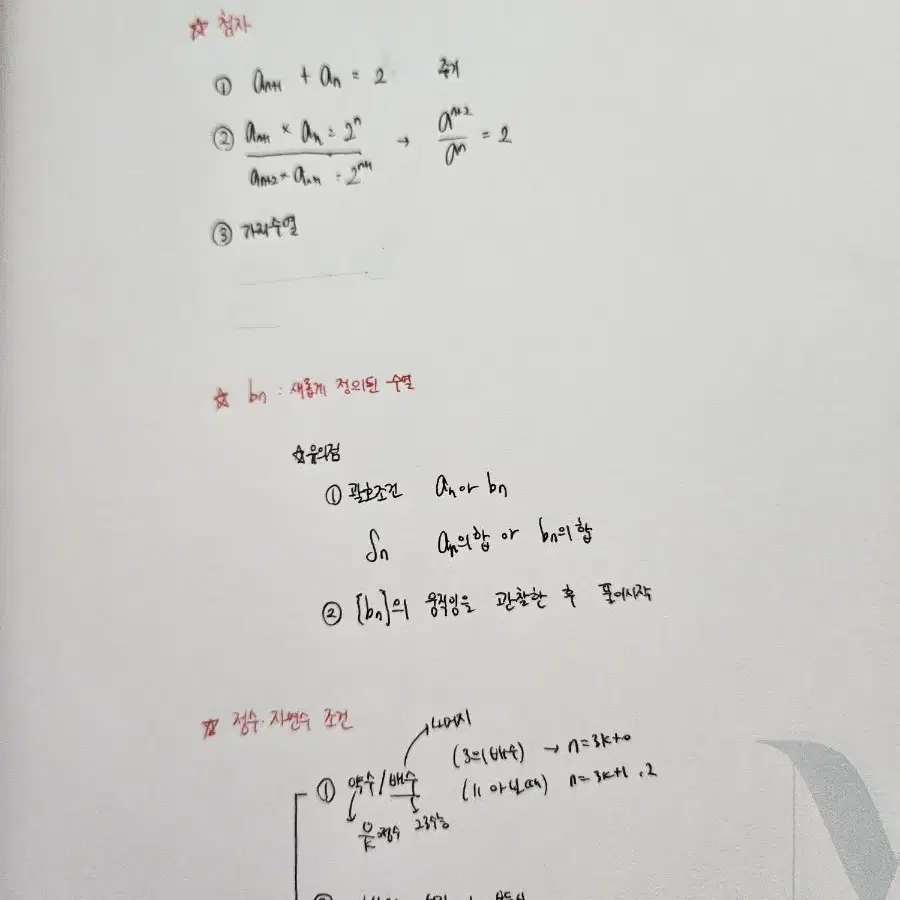 ☆ 첨자
① aₙ₊₁ + aₙ = 2 주기
② aₙ₊₁ × aₙ = 2ⁿ → aⁿ⁺²/aⁿ = 2
aₙ₊₂ × aₙ₊₁ = 2ⁿ⁺¹
③ 가치수열
☆ bₙ : 새롭게 정의된 수열
☆유의점
① 괄호조건 aₙ or bₙ
Sₙ aₙ의합 or bₙ의합
② {bₙ}의 움직임을 관찰한 후 풀이시작
☆ 정수·자연수 조건
나머지
① 약수/배수 (3의배수) → n=3k+0
(" 아닐때) n=3k+1, 2
정수